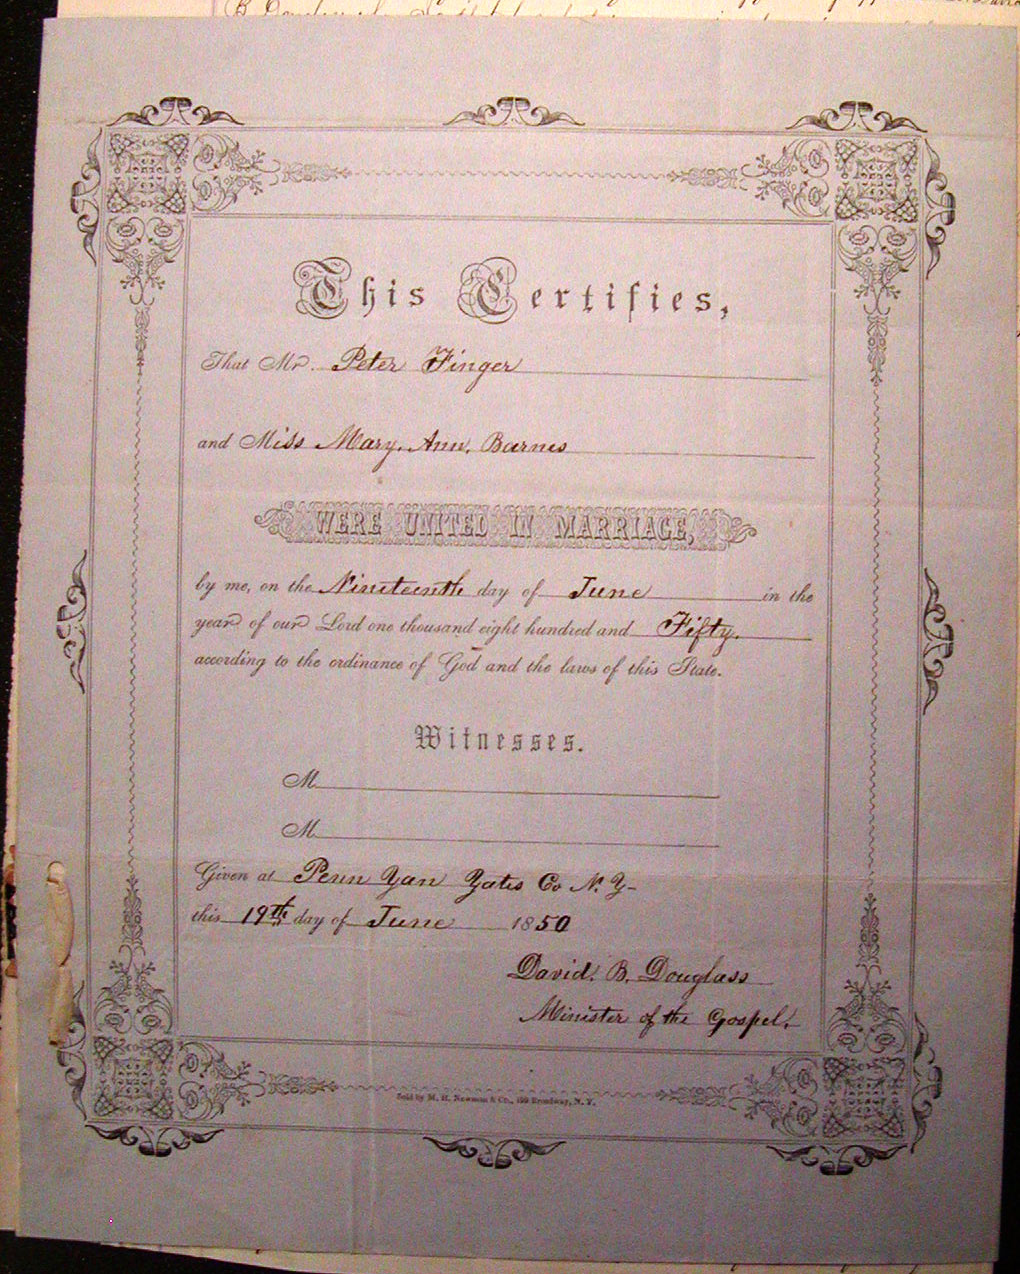 This Certifies,
That Mr. Peter Finger
and Miss Mary. Ann. Barnes
WERE UNITED IN MARRIAGE,
by me, on the Nineteenth day of June in the
year of our Lord one thousand eight hundred and Fifty.
according to the ordinance of God and the laws of this State.
Witnesses.
M
M
Given at Penn Yan Yates Co N. Y-
this 19th day of June 1850
David. B. Douglass
Minister of the Gospel.
Sold by M. H. Newman & Co., 199 Broadway, N. Y.